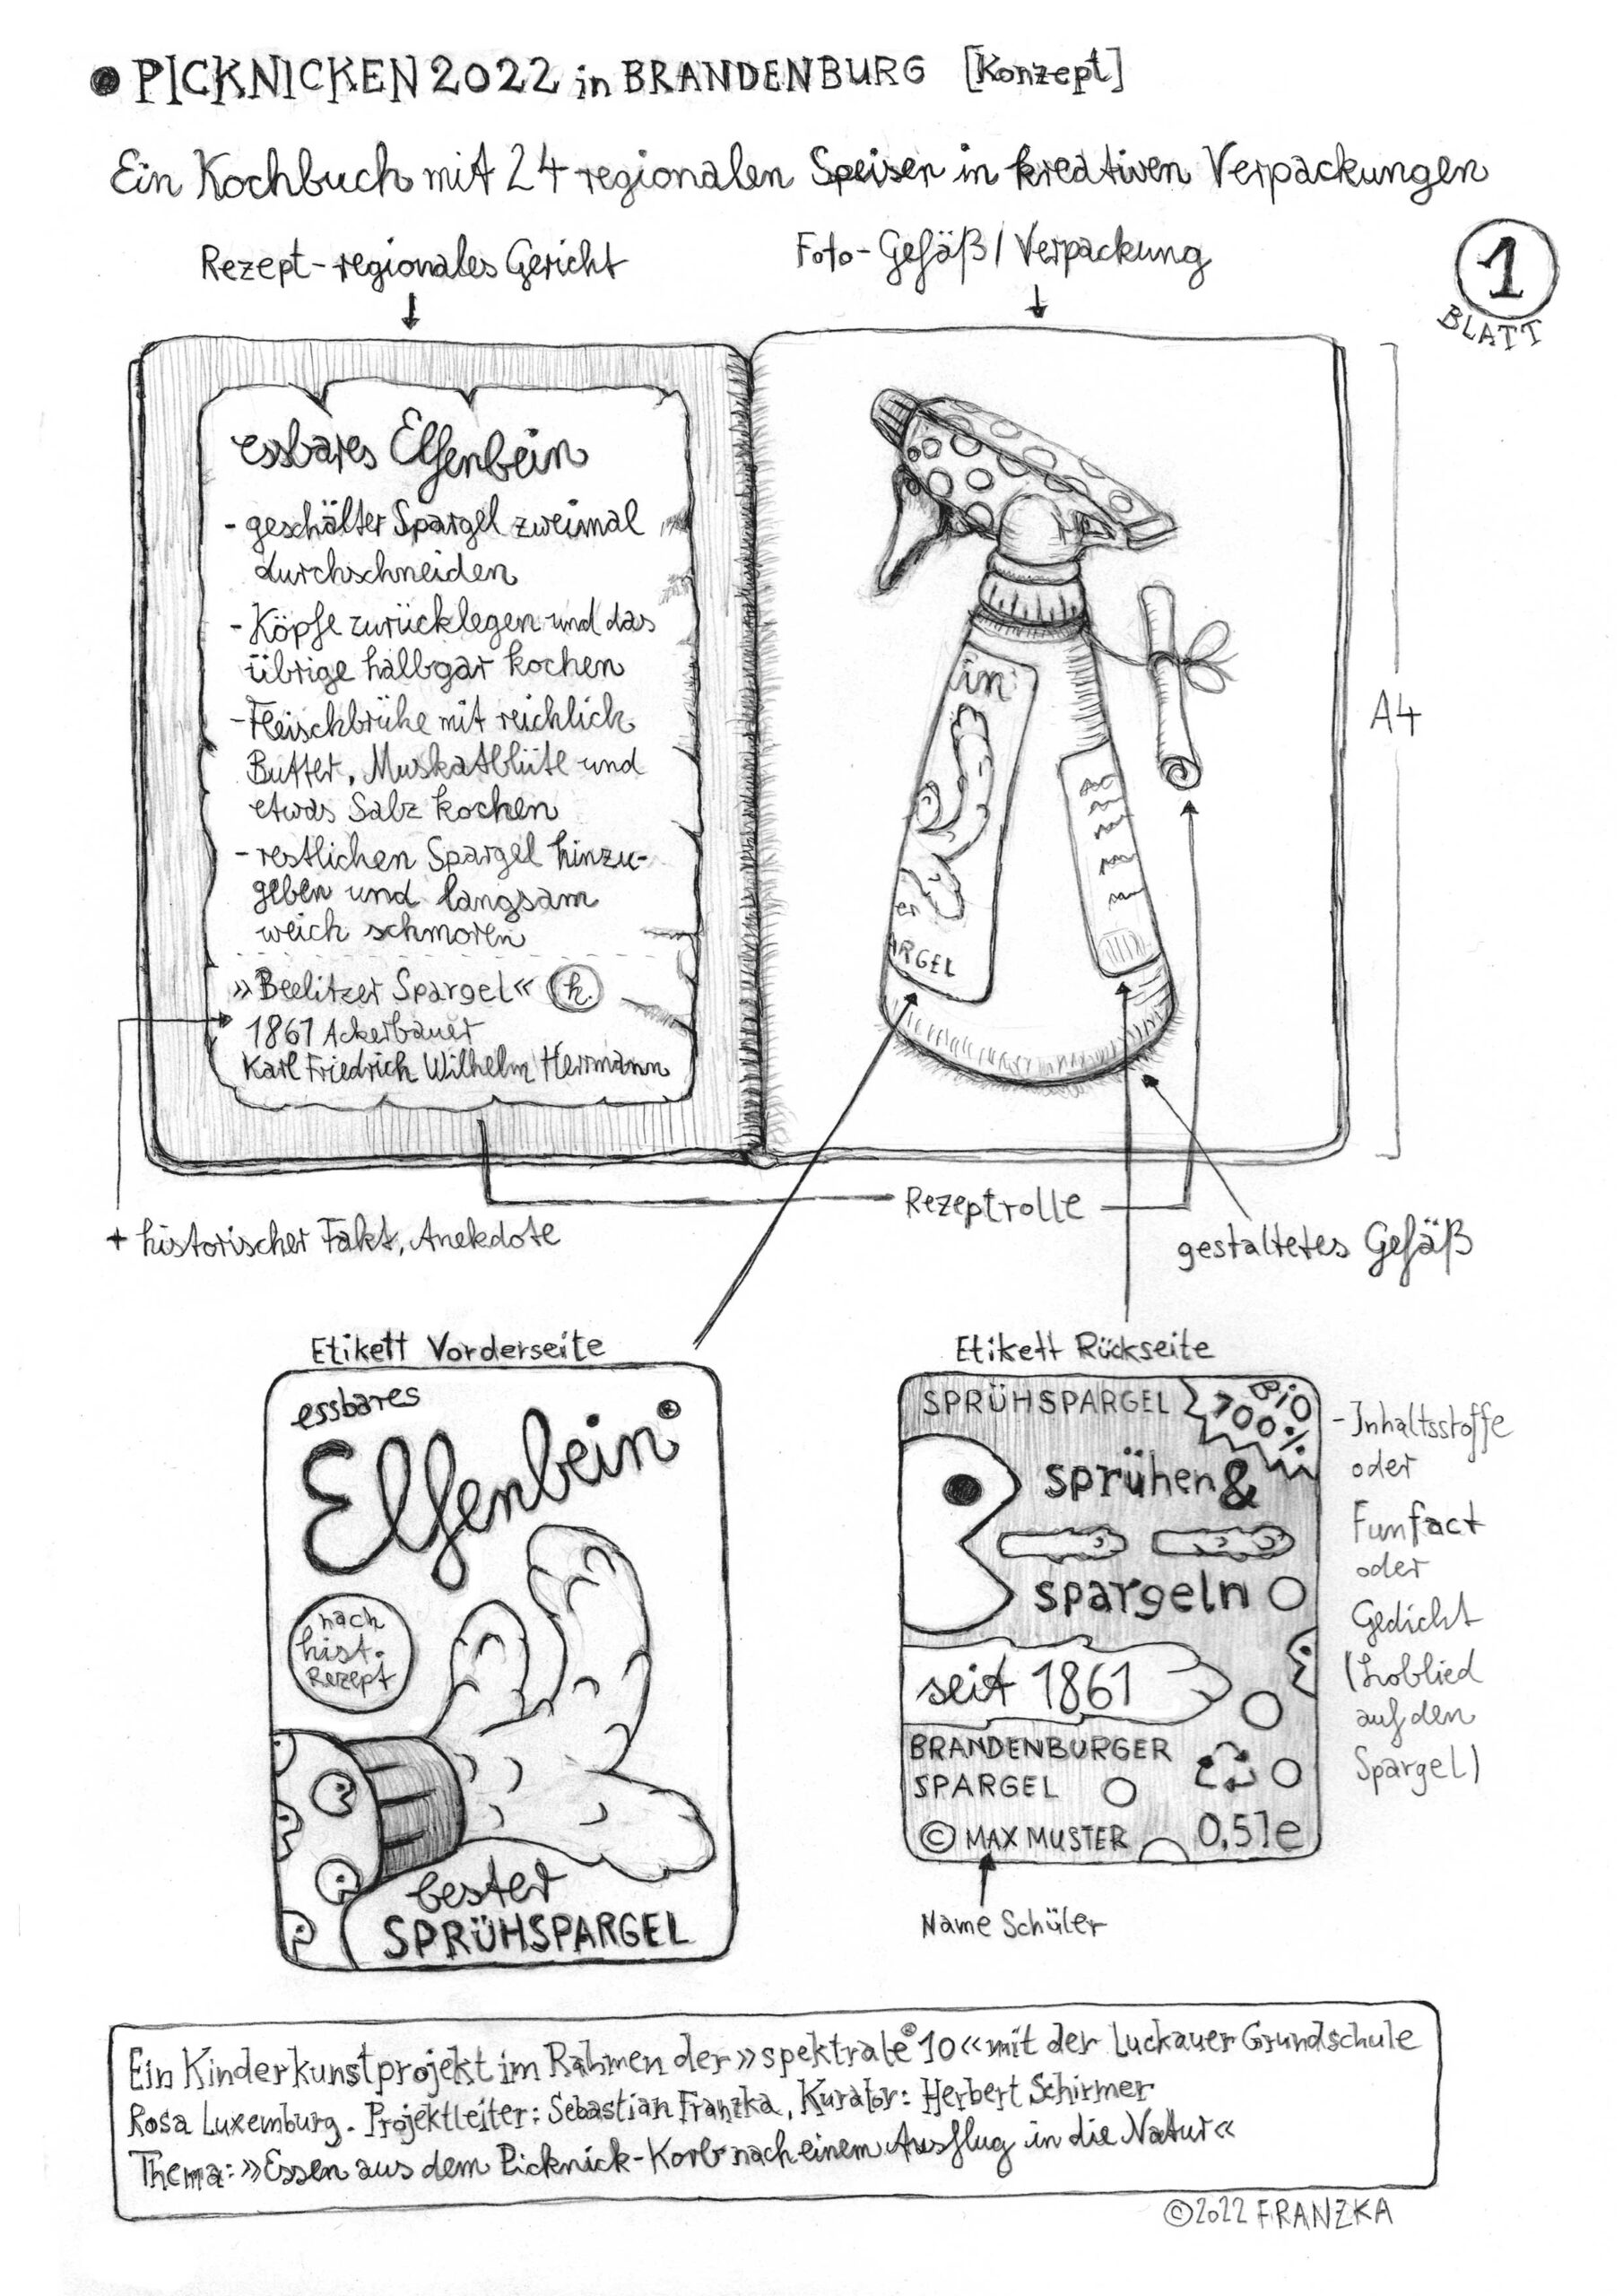 PICKNICKEN 2022 in BRANDENBURG [Konzept]
Ein Kochbuch mit 24 regionalen Speisen in kreativen Verpackungen
Rezept-regionales Gericht
Foto-Gefäß/Verpackung
1
BLATT
essbares Elfenbein
- geschälter Spargel zweimal
durchschneiden
- Köpfe zurücklegen und das
übrige halbgar kochen
- Fleischbrühe mit reichlich
Butter, Muskatblüte und
etwas Salz kochen
- restlichen Spargel hinzu-
geben und langsam
weich schmoren
»Beelitzer Spargel« h.
1861 Ackerbauer
Karl Friedrich Wilhelm Herrmann
in
er
ARGEL
A4
Rezeptrolle
+ historischer Fakt, Anekdote
gestaltetes Gefäß
Etikett Vorderseite
essbares
Elfenbein
nach
hist.
Rezept
bester
SPRÜHSPARGEL
Etikett Rückseite
SPRÜHSPARGEL
BiO
100%
sprühen &
spargeln
seit 1861
BRANDENBURGER
SPARGEL
© MAX MUSTER
0,5l e
- Inhaltsstoffe
oder
Funfact
oder
Gedicht
(Loblied
auf den
Spargel)
Name Schüler
Ein Kinderkunstprojekt im Rahmen der »spektrale 10« mit der Luckauer Grundschule
Rosa Luxemburg. Projektleiter: Sebastian Franzka, Kurator: Herbert Schirmer
Thema: »Essen aus dem Picknick-Korb nach einem Ausflug in die Natur«
©2022 FRANZKA